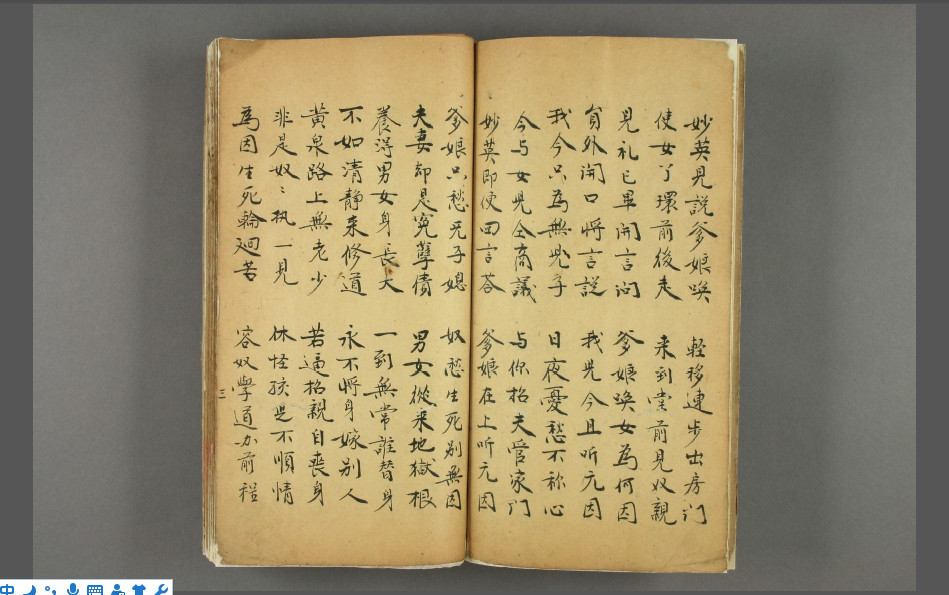 妙英見說爹娘喚　輕移連步出房门
使女丫環前後走　来到堂前見奴親
見礼已畢開言问　爹娘喚女為何因
員外開口將言説　我児今且听元因
我今只為無児子　日夜憂愁不称心
今与女児仝商議　与你招夫管家门
妙英即便回言荅　爹娘在上听元因
爹娘只愁无子媳　奴愁生死别無因
夫妻却是冤孽債　男女從来地獄根
養得男女身長大　一到無常誰替身
不如清静来修道　永不將身嫁别人
黄泉路上無老少　若逼招親自喪身
非是奴〻执一見　休怪孩児不順情
為因生死輪廻苦　容奴學道办前程
三
中